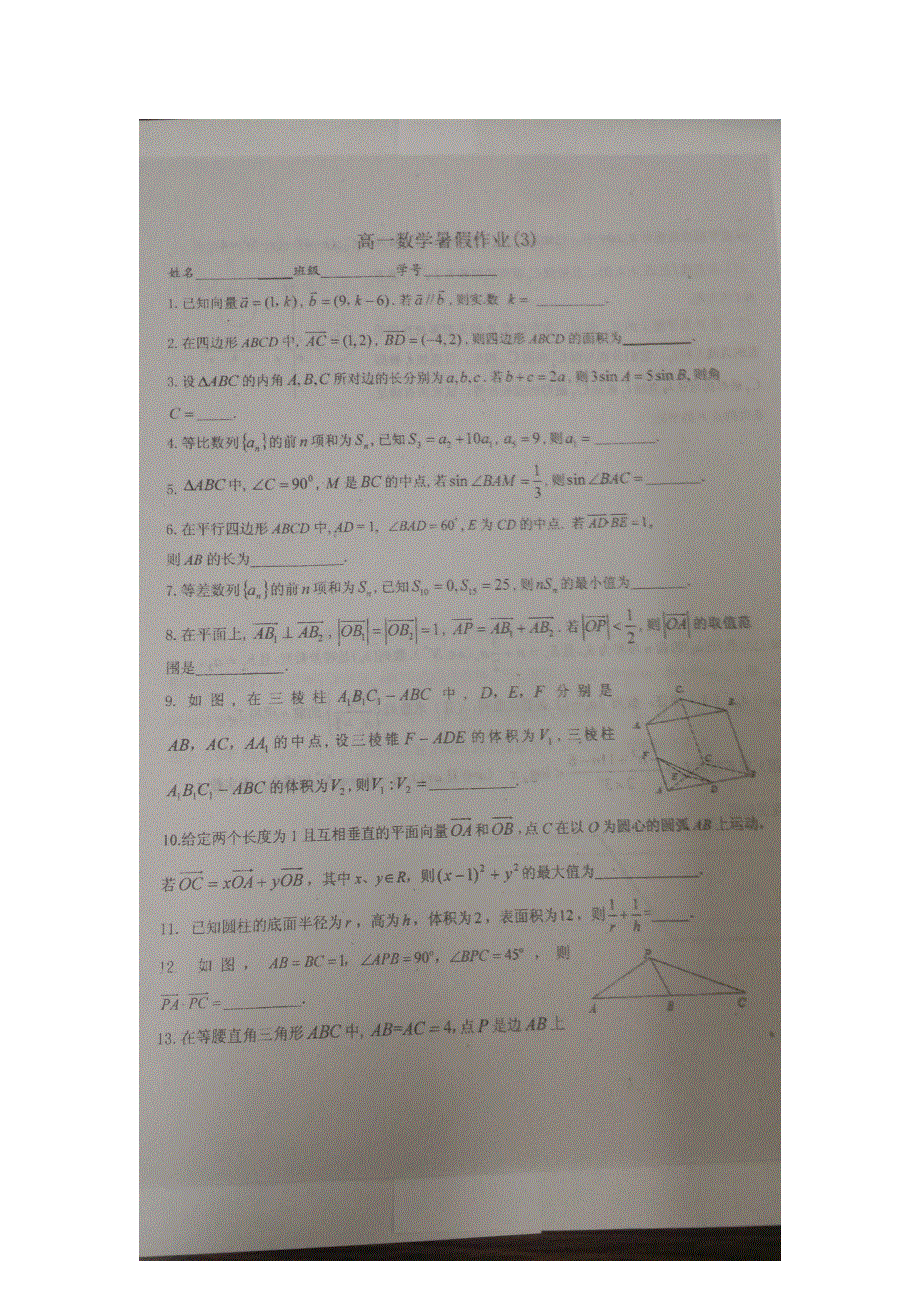 高一数学暑假作业(3)
姓名__________班级________学号________
1. 已知向量 $\vec{a}=(1,k)$, $\vec{b}=(9,k-6)$. 若 $\vec{a}//\vec{b}$, 则实数 k= ________.
2. 在四边形 ABCD 中, $\overrightarrow{AC}=(1,2)$, $\overrightarrow{BD}=(-4,2)$, 则四边形 ABCD 的面积为________.
3. 设 ΔABC 的内角 A,B,C 所对边的长分别为 a,b,c. 若 b+c=2a, 则 3sin A=5sin B, 则角
C=____.
4. 等比数列 $\{a_n\}$ 的前 n 项和为 $S_n$, 已知 $S_3=a_2+10a_1$, $a_5=9$, 则 $a_1=$ ________.
5. ΔABC 中, ∠C=90⁰, M 是 BC 的中点, 若 sin∠BAM=$\frac{1}{3}$, 则 sin∠BAC=________.
6. 在平行四边形 ABCD 中, AD=1, ∠BAD=60°, E 为 CD 的中点. 若 $\overrightarrow{AD}\cdot\overrightarrow{BE}=1$,
则 AB 的长为____________.
7. 等差数列 $\{a_n\}$ 的前 n 项和为 $S_n$, 已知 $S_{10}=0, S_{15}=25$, 则 $nS_n$ 的最小值为________.
8. 在平面上, $\overrightarrow{AB_1}\perp\overrightarrow{AB_2}$, $|\overrightarrow{OB_1}|=|\overrightarrow{OB_2}|=1$, $\overrightarrow{AP}=\overrightarrow{AB_1}+\overrightarrow{AB_2}$. 若 $|\overrightarrow{OP}|<\frac{1}{2}$, 则 $|\overrightarrow{OA}|$ 的取值范
围是____________.
9. 如图, 在三棱柱 $A_1B_1C_1-ABC$ 中, D, E, F 分别是
AB, AC, $AA_1$ 的中点, 设三棱锥 F-ADE 的体积为 $V_1$, 三棱柱
$A_1B_1C_1-ABC$ 的体积为 $V_2$, 则 $V_1:V_2=$____________.
10.给定两个长度为 1 且互相垂直的平面向量 $\overrightarrow{OA}$ 和 $\overrightarrow{OB}$, 点 C 在以 O 为圆心的圆弧 AB 上运动,
若 $\overrightarrow{OC}=x\overrightarrow{OA}+y\overrightarrow{OB}$, 其中 x、y∈R, 则 $(x-1)^2+y^2$ 的最大值为____________.
11. 已知圆柱的底面半径为 r, 高为 h, 体积为 2, 表面积为12, 则 $\frac{1}{r}+\frac{1}{h}=$____.
12 如图, AB=BC=1, ∠APB=90°, ∠BPC=45°, 则
$\overrightarrow{PA}\cdot\overrightarrow{PC}=$____________.
P
A B C
13. 在等腰直角三角形 ABC 中, AB=AC=4, 点 P 是边 AB 上